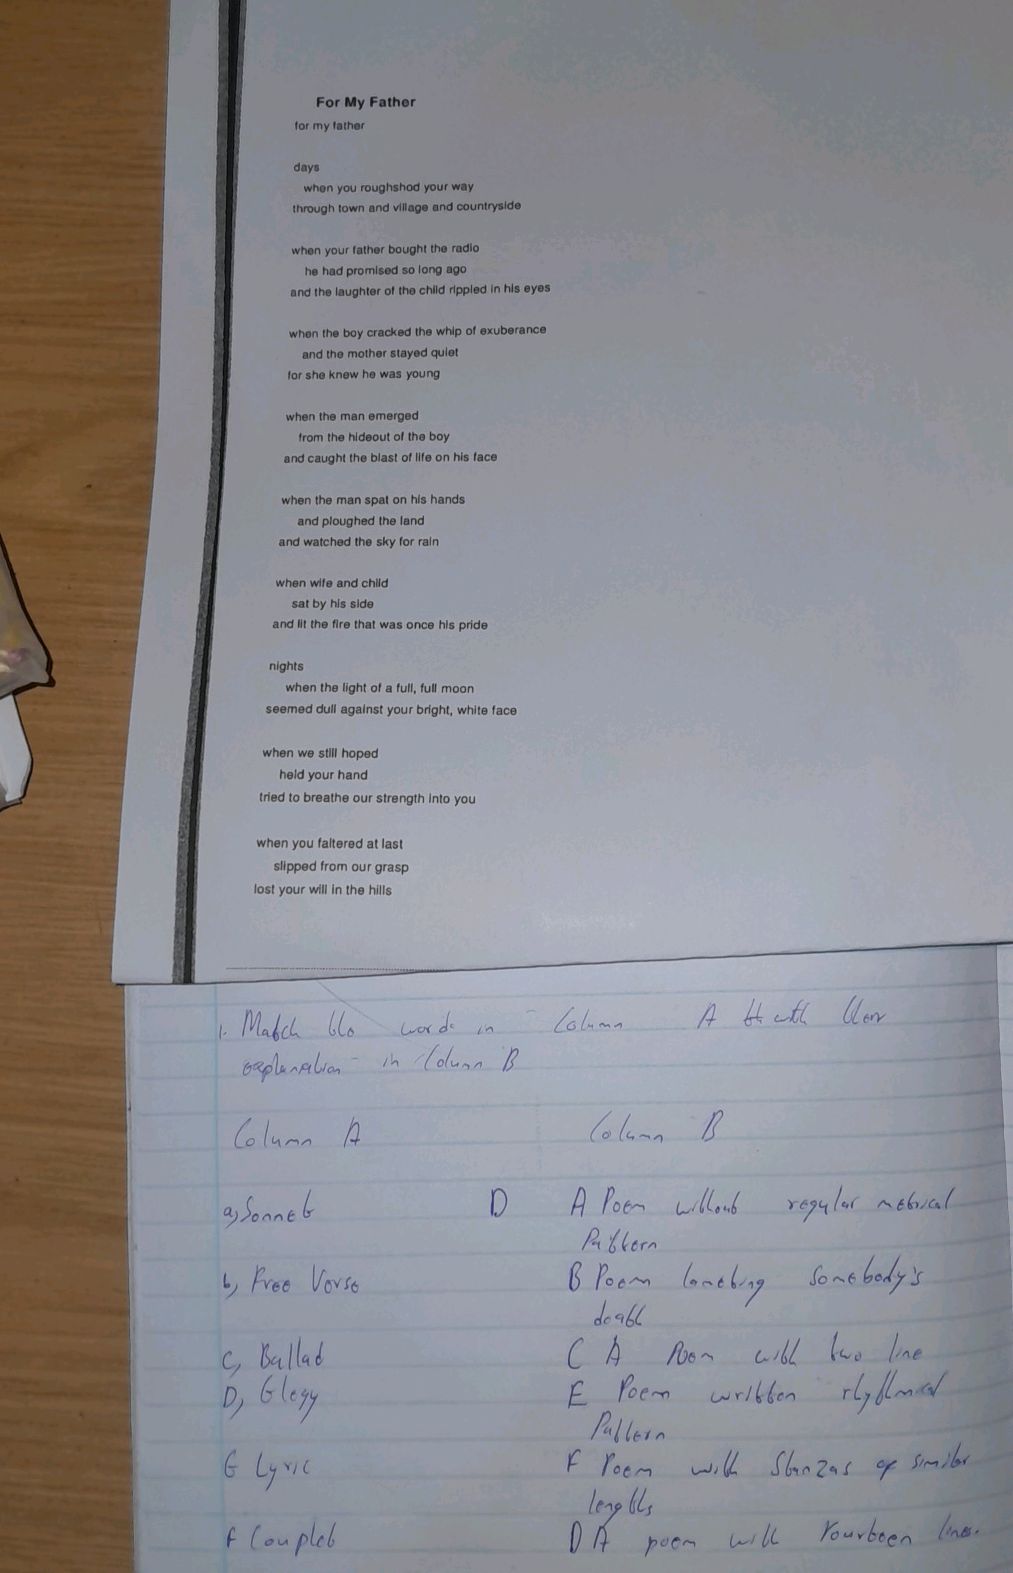 For My Father
for my father
days
when you roughshod your way
through town and village and countryside
when your father bought the radio
he had promised so long ago
and the laughter of the child rippled in his eyes
when the boy cracked the whip of exuberance
and the mother stayed quiet
for she knew he was young
when the man emerged
from the hideout of the boy
and caught the blast of life on his face
when the man spat on his hands
and ploughed the land
and watched the sky for rain
when wife and child
sat by his side
and lit the fire that was once his pride
nights
when the light of a full, full moon
seemed dull against your bright, white face
when we still hoped
held your hand
tried to breathe our strength into you
when you faltered at last
slipped from our grasp
lost your will in the hills
1. Match words in Column A with
explanation in Column B
Column A Column B
a) Sonnet D A Poem without regular metrical
Pattern
b) Free Verse B Poem somebody's
death
C) Ballad C A Poem with two line
D) Elegy E Poem written
Pattern
E Lyric F Poem with Stanzas of similar
lengths
F Couplet D A poem with fourteen lines.